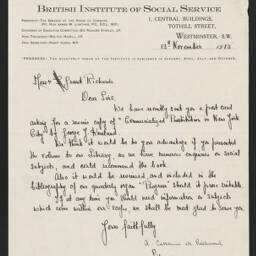 British Institute of Social Service
President—The Speaker of the House of Commons
1, Central Buildings,
Tothill Street,
Westminster, S.W.
13th November 1913
"Progress: The quarterly organ of the Institute is published in January, April, July and October.
Grant Richards
Dear Sirs,
We have recently sent you a post card
asking for a review copy of "Commercialized Prostitution in New York
City" by George J. Kneeland.
We think it would be to your advantage if you presented
the volume to our Library, as we have numerous enquiries on social
subjects, and could recommend the book.
Also it would be reviewed and included in the
bibliography of our quarterly organ "Progress" should it prove suitable.
If at any time you should need information on subjects
which come within our scope, we shall be most glad to serve you.
Yours faithfully